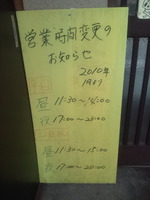 営業時間変更の
お知らせ
2010年
昼 11:30〜14:00
夜 17:00〜20:00
昼 11:30〜15:00
夜 17:00〜20:00